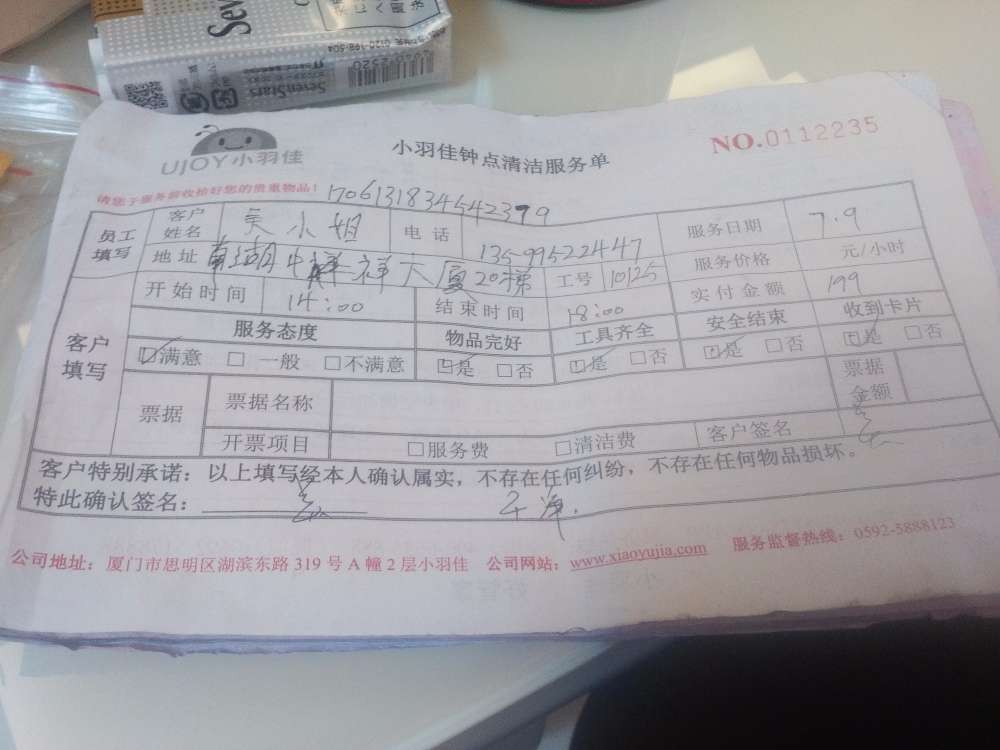 Seve
SevenStars
0120-198-504
UJOY小羽佳
小羽佳钟点清洁服务单
NO.0112235
请您于服务前收拾好您的贵重物品！
1706131834542379
员工填写
客户姓名
吴小姐
电话
13599522447
服务日期
7.9
地址
大厦20梯
工号
10125
服务价格
元/小时
客户填写
开始时间
14:00
结束时间
18:00
实付金额
199
服务态度
物品完好
工具齐全
安全结束
收到卡片
☑满意 □一般 □不满意
☑是 □否
☑是 □否
☑是 □否
☑是 □否
票据
票据名称
票据金额
开票项目
□服务费
□清洁费
客户签名
客户特别承诺：以上填写经本人确认属实，不存在任何纠纷，不存在任何物品损坏。
特此确认签名：
公司地址：厦门市思明区湖滨东路 319 号 A 幢 2 层小羽佳 公司网站：www.xiaoyujia.com 服务监督热线：0592-5888123